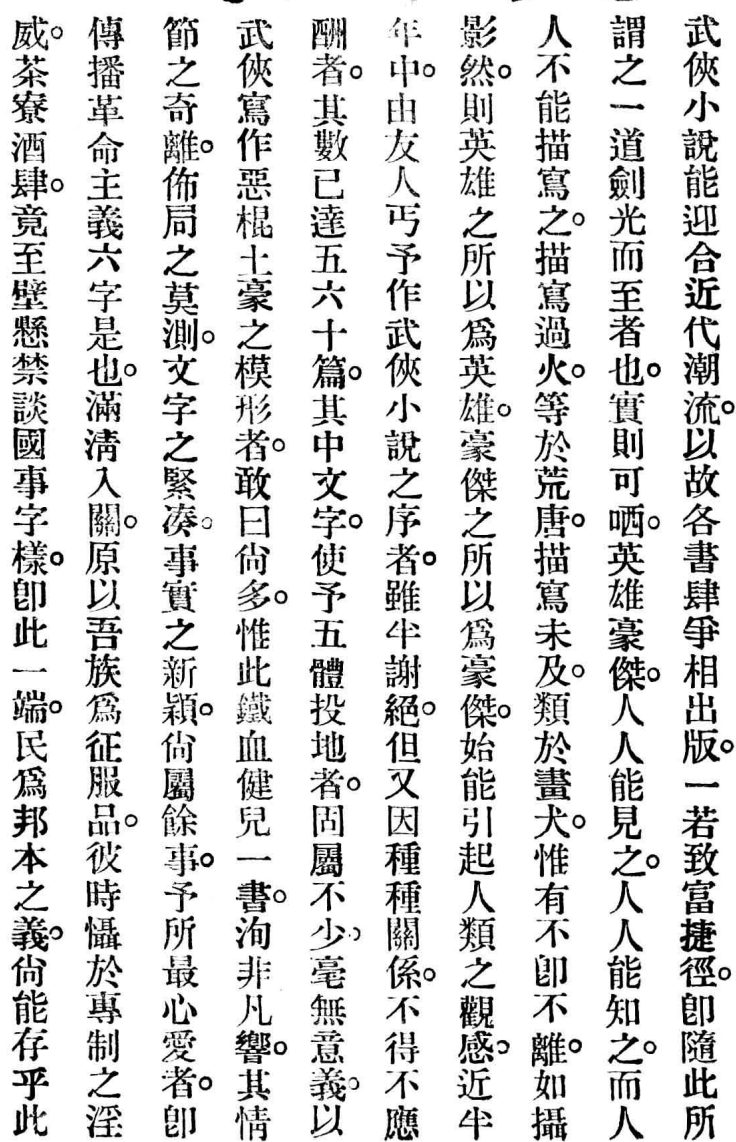 武俠小說能迎合近代潮流。以故各書肆爭相出版。一若致富捷徑。卽隨此所
謂之一道劍光而至者也。實則可哂。英雄豪傑。人人能見之。人人能知之。而人
人不能描寫之。描寫過火。等於荒唐。描寫未及。類於畫犬。惟有不卽不離。如攝
影然。則英雄之所以爲英雄。豪傑之所以爲豪傑。始能引起人類之觀感。近半
年中。由友人丐予作武俠小說之序者。雖半謝絕。但又因種種關係。不得不應
酬者。其數已達五六十篇。其中文字。使予五體投地者。固屬不少。毫無意義。以
武俠寫作惡棍土豪之模形者。敢曰尙多。惟此鐵血健兒一書。洵非凡響。其情
節之奇離。佈局之莫測。文字之緊凑。事實之新穎。尙屬餘事。予所最心愛者。卽
傳播革命主義六字是也。滿淸入關。原以吾族爲征服品。彼時懾於專制之淫
威。茶寮酒肆。竟至壁懸禁談國事字樣。卽此一端。民爲邦本之義。尙能存乎此